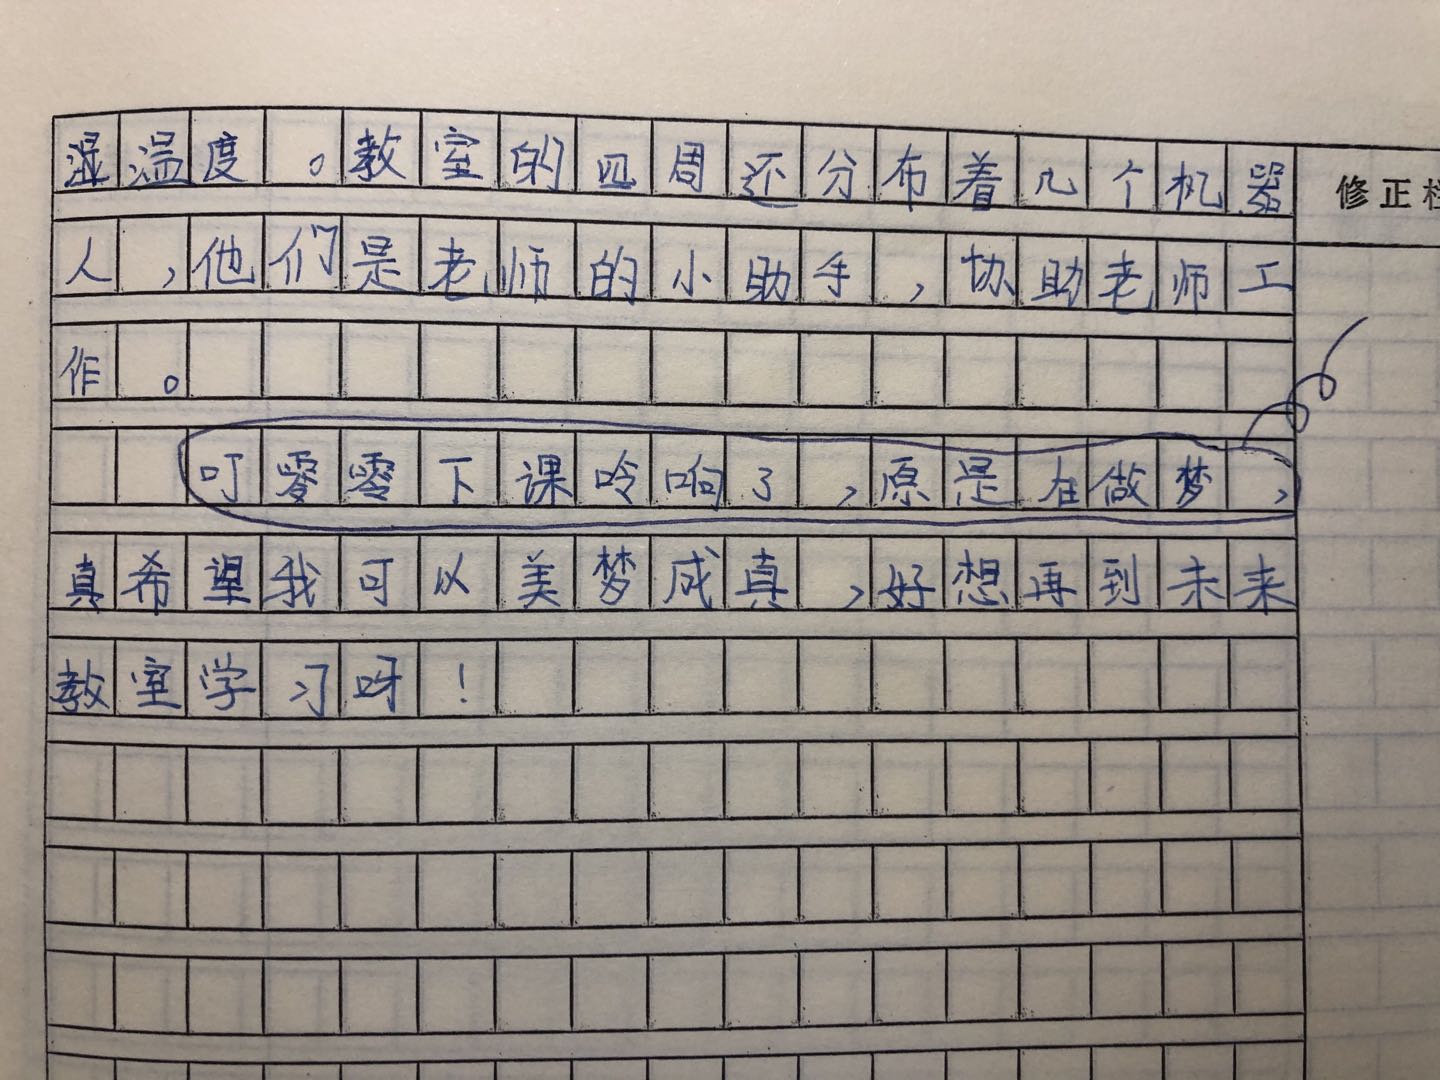 湿温度。教室的四周还分布着几个机器
修正栏
人，他们是老师的小助手，协助老师工
作。
叮零零下课呤响了，原是在做梦，
真希望我可以美梦成真，好想再到未来
教室学习呀！